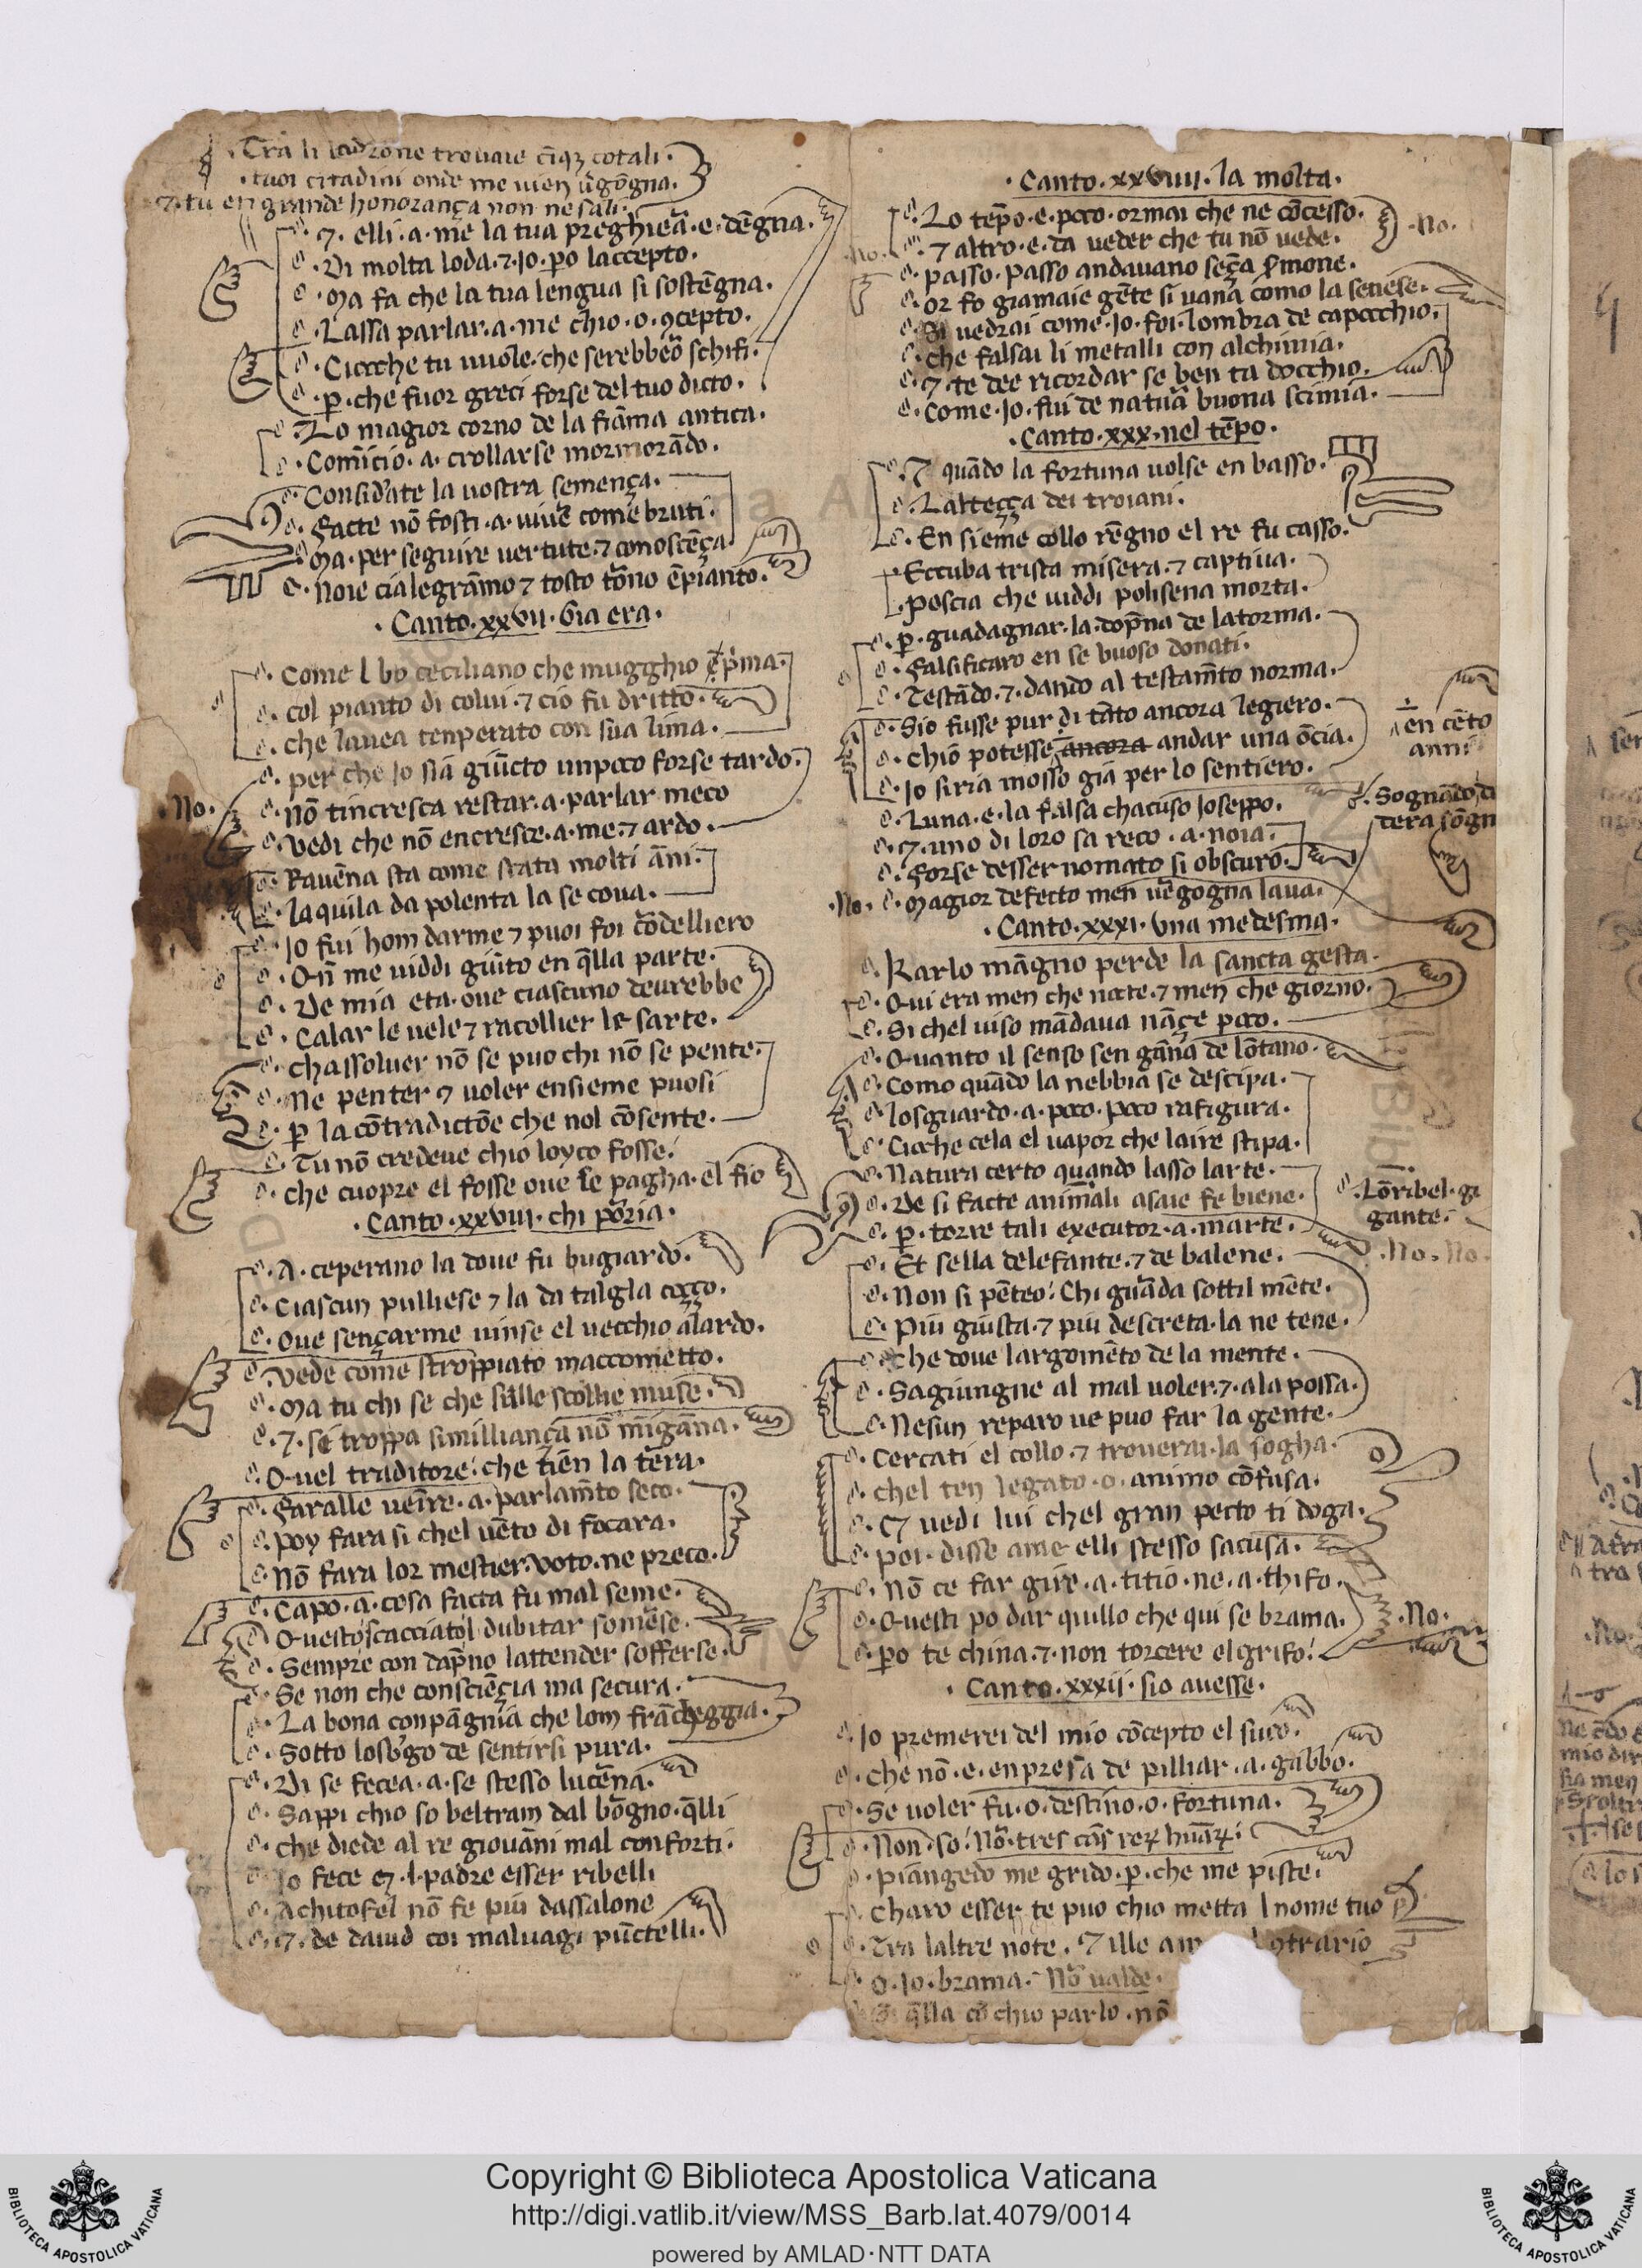 Tra li ladrone trovaie cīqꝫ cotali.
.tuoi citadini onde me vien v̄gōgna.
.⁊.tu en grande honorança non ne sali.
e. ⁊. elli.a.me la tua preghiera.e.dēgna.
e. Di molta loda.⁊.Io.ꝑo laccepto.
e. Ma fa che la tua lengua si sostēgna.
e. Lassa parlar.a.me chio.o.ꝯcepto.
e. Cioche tu vuole.che serebbeō schifi.
e. ꝑ.che fuor greci forse del tuo dicto.
e. Lo magior corno de la fiāma antica.
e. Comīcio.a.crollarse mormorādo.
e. Considate la vostra semença.
e. Facte nō fosti.a.vivē come bruti.
e. Ma.per seguire vertute.⁊ conoscēça
e. Noie cialegrāmo ⁊ tosto tōrno ēpianto.
.Canto.xxvii.Gia era.
e. Come l bo ceciliano che mugghio ēpma.
e. col pianto di colui.⁊ cio fu dritto.
e. che lavea tenperato con sua lima.
e. per che Io sia giūcto unpoco forse tardo.
.No.
e. Nō tincresca restar.a.parlar meco
e. Vedi che nō encresce.a.me.⁊ ardo.
e. Ravēna sta come stata molti āni.
e. laquila da polenta la se cova.
e. Io fui hom darme ⁊ puoi foi cōdelliero
e. On̄ me viddi giūto en q̄lla parte.
e. De mia eta.ove ciascuno devrebbe
e. Calar le vele ⁊ racollier le sarte.
e. Chassolver nō se puo chi nō se pente.
e. Ne penter ⁊ voler ensieme puosi
e. ꝑ la cōtradictōe che nol cōsente.
e. Tu nō credeve chio loyco fosse.
e. Che cuopre el fosse ove se pagha.el fio
.Canto.xxviii.chi poria.
e. A.ceperano la dove fu bugiardo.
e. Ciascun pulliese ⁊ la da talgla coçço.
e. Ove sençarme vinse el vecchio alardo.
e. Vede come stroppiato maccometto.
e. Ma tu chi se che sulle scollie muse.
e. ⁊.se troppa similliança nō migāna.
e. Quel traditore.che tiēn la tēra.
e. Faralle venīre.a.parlamto seco.
e. Poy fara si chel vēto di focara.
e. Nō fara lor mestier.voto.ne preco.
e. Capo.a.cosa facta fu mal seme.
e. Questo scacciato.l dubitar somēse.
e. Sempre con dapno lattender sofferse.
e. Se non che consciēçia ma secura.
e. La bona conpāgnia che lom frācheggia.
e. Sotto losbgo de sentirsi pura.
e. Di se fecea.a.se stesso lucēna.
e. Sappi chio so beltram dal bōgno.q̄lli
e. che diede al re giovāni mal conforti.
e. Io fece ⁊.l.padre esser ribelli
e. Achitofel nō fe piu dassalone
e. ⁊.de david coi malvagi pūctelli.
.Canto.xxviiii.la molta.
e. Lo tēpo.e.poco.ormai che ne cōcesso.
.No.
e. ⁊ altro.e.da veder che tu nō vede.
.No.
e. passo.passo andavano sēça smone.
e. or fo giamaie gēte si vana como la senese.
e. Si vedrai come.Io.foi.lombra de capocchio.
e. che falsai li metalli con alchimia.
e. ⁊.te dee ricordar se ben ta docchio.
e. Come.Io.fui de natura buona scimia.
.Canto.xxx.nel tēpo.
e. ⁊ quādo la fortuna volse en basso.
e. Lalteçça dei troiani.
e. En sieme collo rēgno el re fu casso.
Eccuba trista misera.⁊ captiva.
.Poscia che viddi polisena morta.
e. ꝑ.guadagnar.la.dopna de latorma.
e. Falsificaro en se buoso donati.
e. Testādo.⁊.dando al testamto norma.
e. Sio fusse pur di tāto ancora legiero.
en cēto
anni
e. Chio potesse ancora andar una ōcia.
e. Io siria mosso gia per lo sentiero.
e. Luna.e.la falsa chacuso Ioseppo.
e. ⁊.uno di loro sa reco.a.noia.
e. Forse desser nomato si obscuro.
.No. e. Magior defecto men vēgogna lava.
.Canto.xxxi.Una medesma.
e. Karlo māgno perde la sancta gesta.
e. Qui era men che nocte.⁊ men che giorno.
e. Si chel viso mādava nāçe poco.
e. Quanto il senso sen gāna de lōtano.
e. Como quādo la nebbia se descipa.
e. losguardo.a.poco.poco rafigura.
e. Cioche cela el vapor che laire stipa.
e. Natura certo quando lasso larte.
e. De si facte animali asaie fe biene.
e. Lōribel.gi
gante.
e. ꝑ.torre tali executor.a.marte.
.No.No.
e. Et sella delefante.⁊ de balene.
e. Non si pēteo.Chi guāda sottil mēte.
e. Piu giusta.⁊ piu descreta.la ne tene.
e. Che dove largomēto de la mente.
e. Sagiungne al mal voler.⁊.ala possa.
e. Nesun reparo ve puo far la gente.
e. Cercati el collo.⁊ troverai.la sogha.
e. chel ten legato.o.animo cōfusa.
e. ⁊ vedi lui chel gran pecto ti doga.
e. poi.disse ame elli stesso sacusa.
e. Nō ce far gire.a.titio.ne.a.thifo.
e. Questi po dar quillo che qui se brama.
.No.
e. ꝑo te china.⁊.non torcere el grifo.
.Canto.xxxii.sio avesse.
e. Io premerei del mio cōcepto el suco.
e. che nō.e.enpresa de pilliar.a.gabbo.
e. Se voler fu.o.destino.o.fortuna.
e. Non.so.
e. piāngēdo me grido.ꝑ.che me piste.
e. Charo esser te puo chio metta l nome tuo
e. Tra laltre note.
e. o.Io.brama.
q̄lla cō chio parlo.nō